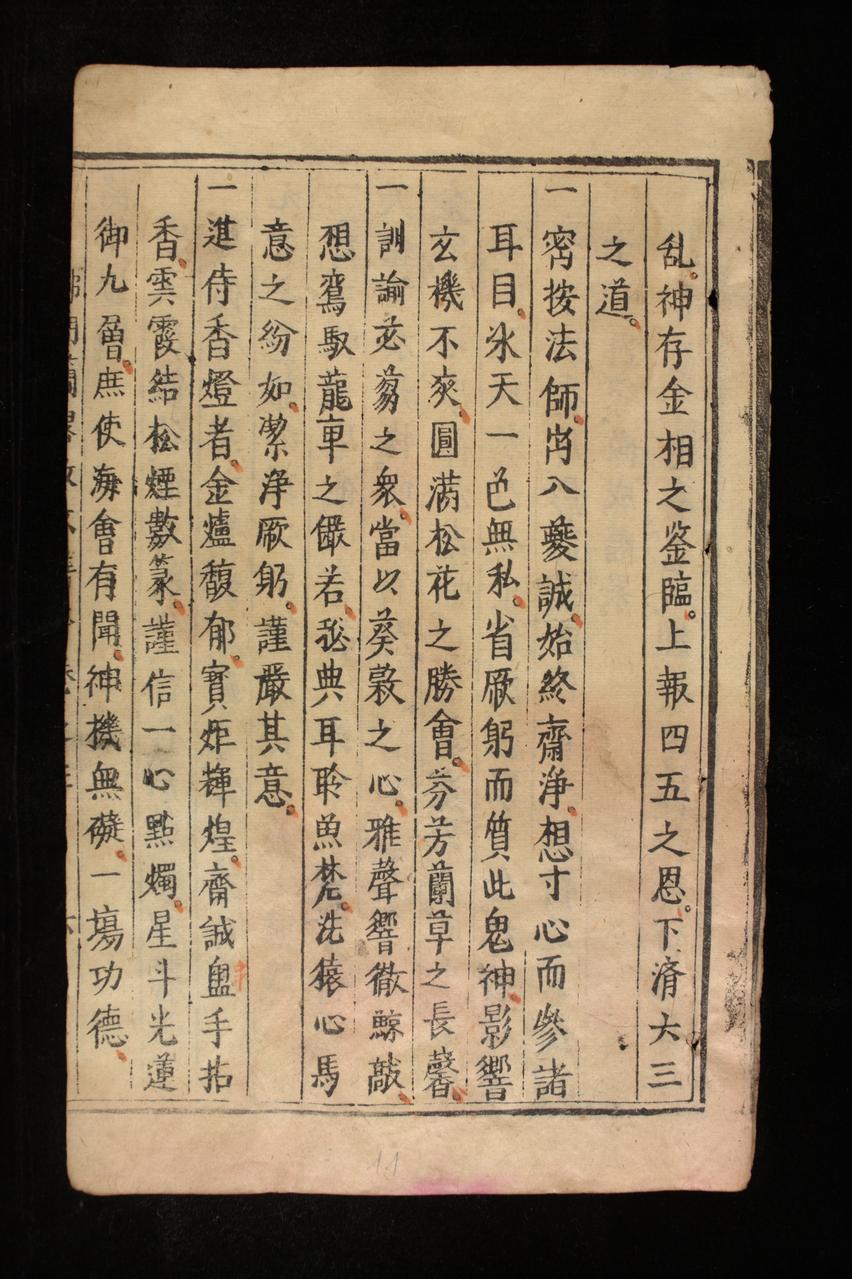 乱。神存金相之鉴臨。上報四五之恩。下濟六三
之道。
一密按法師。肖八夔誠。始終齋淨。想寸心而參諸
耳目。氷天一色無私。省厥躬而質此鬼神。影響
玄機不爽。圓滿松花之勝會。芬芳蘭草之長馨。
一訓諭苾蒭之衆。當以葵藿之心。雅聲響徹鯨敲。
想鸞馭龍車之儼若。玅典耳聆魚梵。洗猿心馬
意之紛如。潔淨厥躬。謹嚴其意。
一進侍香燈者。金爐馥郁。寳炬輝煌。齋誠盥手拈
香。雲霞結松煙數篆。謹信一心點燭。星斗光蓮
御九層。庶使海會有聞。神機無礙。一塲功德。